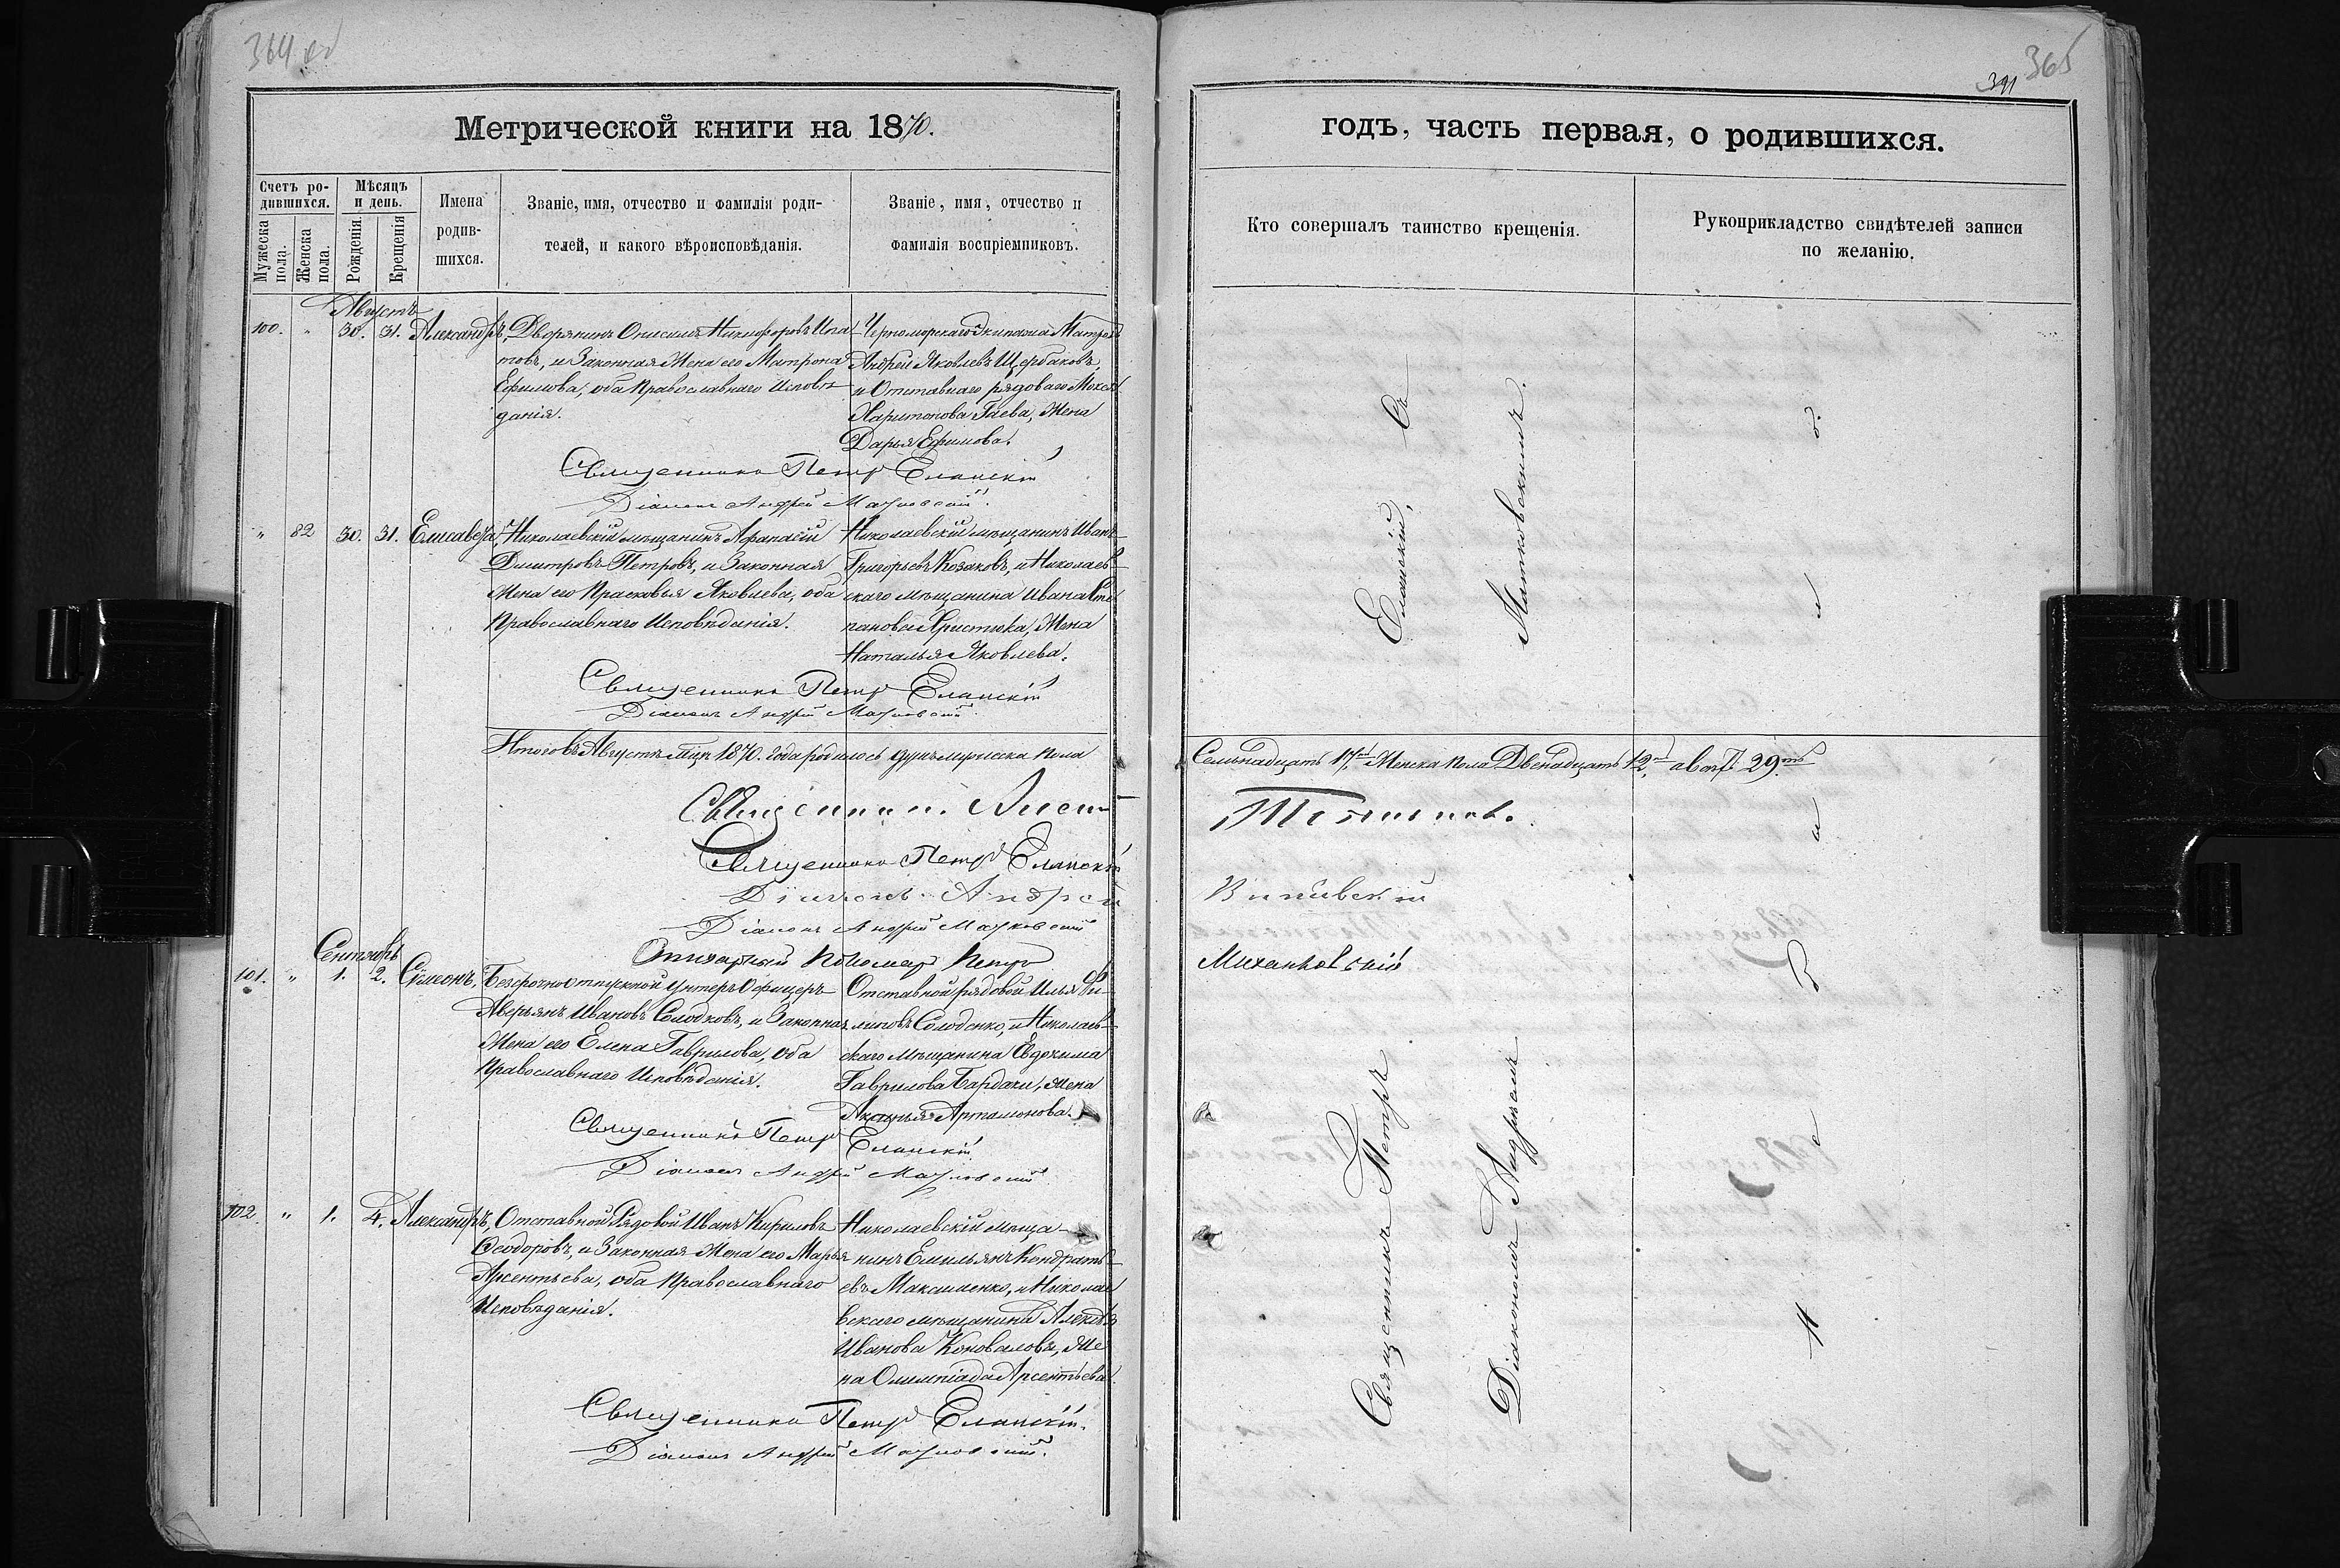 364 об
Метрической книги на 1870.
Счетъ ро-
дившихся.
Мѣсяцъ
и день.
Мужеска
пола.
Женска
пола.
Рожденія.
Крещенія
Имена
родив-
шихся.
Званіе, имя, отчество и фамилія роди-
телей, и какого вѣроисповѣданія.
Званіе, имя, отчество и
фамилія воспріемниковъ.
Августъ
100. " 30. 31. Александръ,
Дворянинъ Онисимъ Никифоровъ Игна-
товъ, и Законная Жена его Матрона
Ефимова, оба Православнаго Исповѣ-
данія.
Черноморскаго Экипажа Матрозъ
Андрей Яковлевъ Щербаковъ,
и Отставнаго рядоваго
Харитонова Гаева, Жена
Дарья Ефимова.
Священникъ Петръ Еланскій
Діаконъ Андрей
" 82 30. 31. Елисавета,
Николаевскій мѣщанинъ Афанасій
Димитровъ Петровъ, и Законная
Жена его Прасковья Яковлева, оба
Православнаго Исповѣданія.
Николаевскій мѣщанинъ Иванъ
Григорьевъ Козаковъ, и Николаев-
скаго мѣщанина Ивана Сте-
панова Христюка, Жена
Наталья Яковлева.
Священникъ Петръ Еланскій
Діаконъ Андрей
Итого въ Августѣ м͠цѣ 1870. года родилось душъ мужеска пола
Священникъ
Священникъ Петръ Еланскій
Діаконъ Андрей
Діаконъ Андрей
Стихарный Пономарь Петръ
Сентябрь
101. " 1. 2. Сѵмеонъ,
Безсрочноотпускной Унтеръ Офицеръ
Аверьянъ Ивановъ Солодковъ, и Законная
Жена его Елена Гаврилова, оба
Православнаго Исповѣданія.
Отставной рядовой Илья Фи-
липовъ Солоденко, и Николаев-
скаго мѣщанина Евдокима
Гаврилова Бардаки, жена
Аксинья Артамонова.
Священникъ Петръ Еланскій
Діаконъ Андрей
102. " 1. 4. Александръ,
Отставной Рядовой Иванъ Кириловъ
Ѳеодоровъ, и Законная Жена его Марья
Арсентьева, оба Православнаго
Исповѣданія.
Николаевскій мѣща-
нинъ Емильянъ Кондрать-
евъ Максименко, и Николае-
вскаго мѣщанина
Иванова Коновалова, Же-
на Олимпіада Арсентьева.
Священникъ Петръ Еланскій.
Діаконъ Андрей
365
391
годъ, часть первая, о родившихся.
Кто совершалъ таинство крещенія.
Рукоприкладство свидѣтелей записи
по желанію.
Священникъ Петръ Еланскій, съ
Діакономъ Андреемъ
Семьнадцать 17, Женска пола Двенадцать 12, а всего 29.